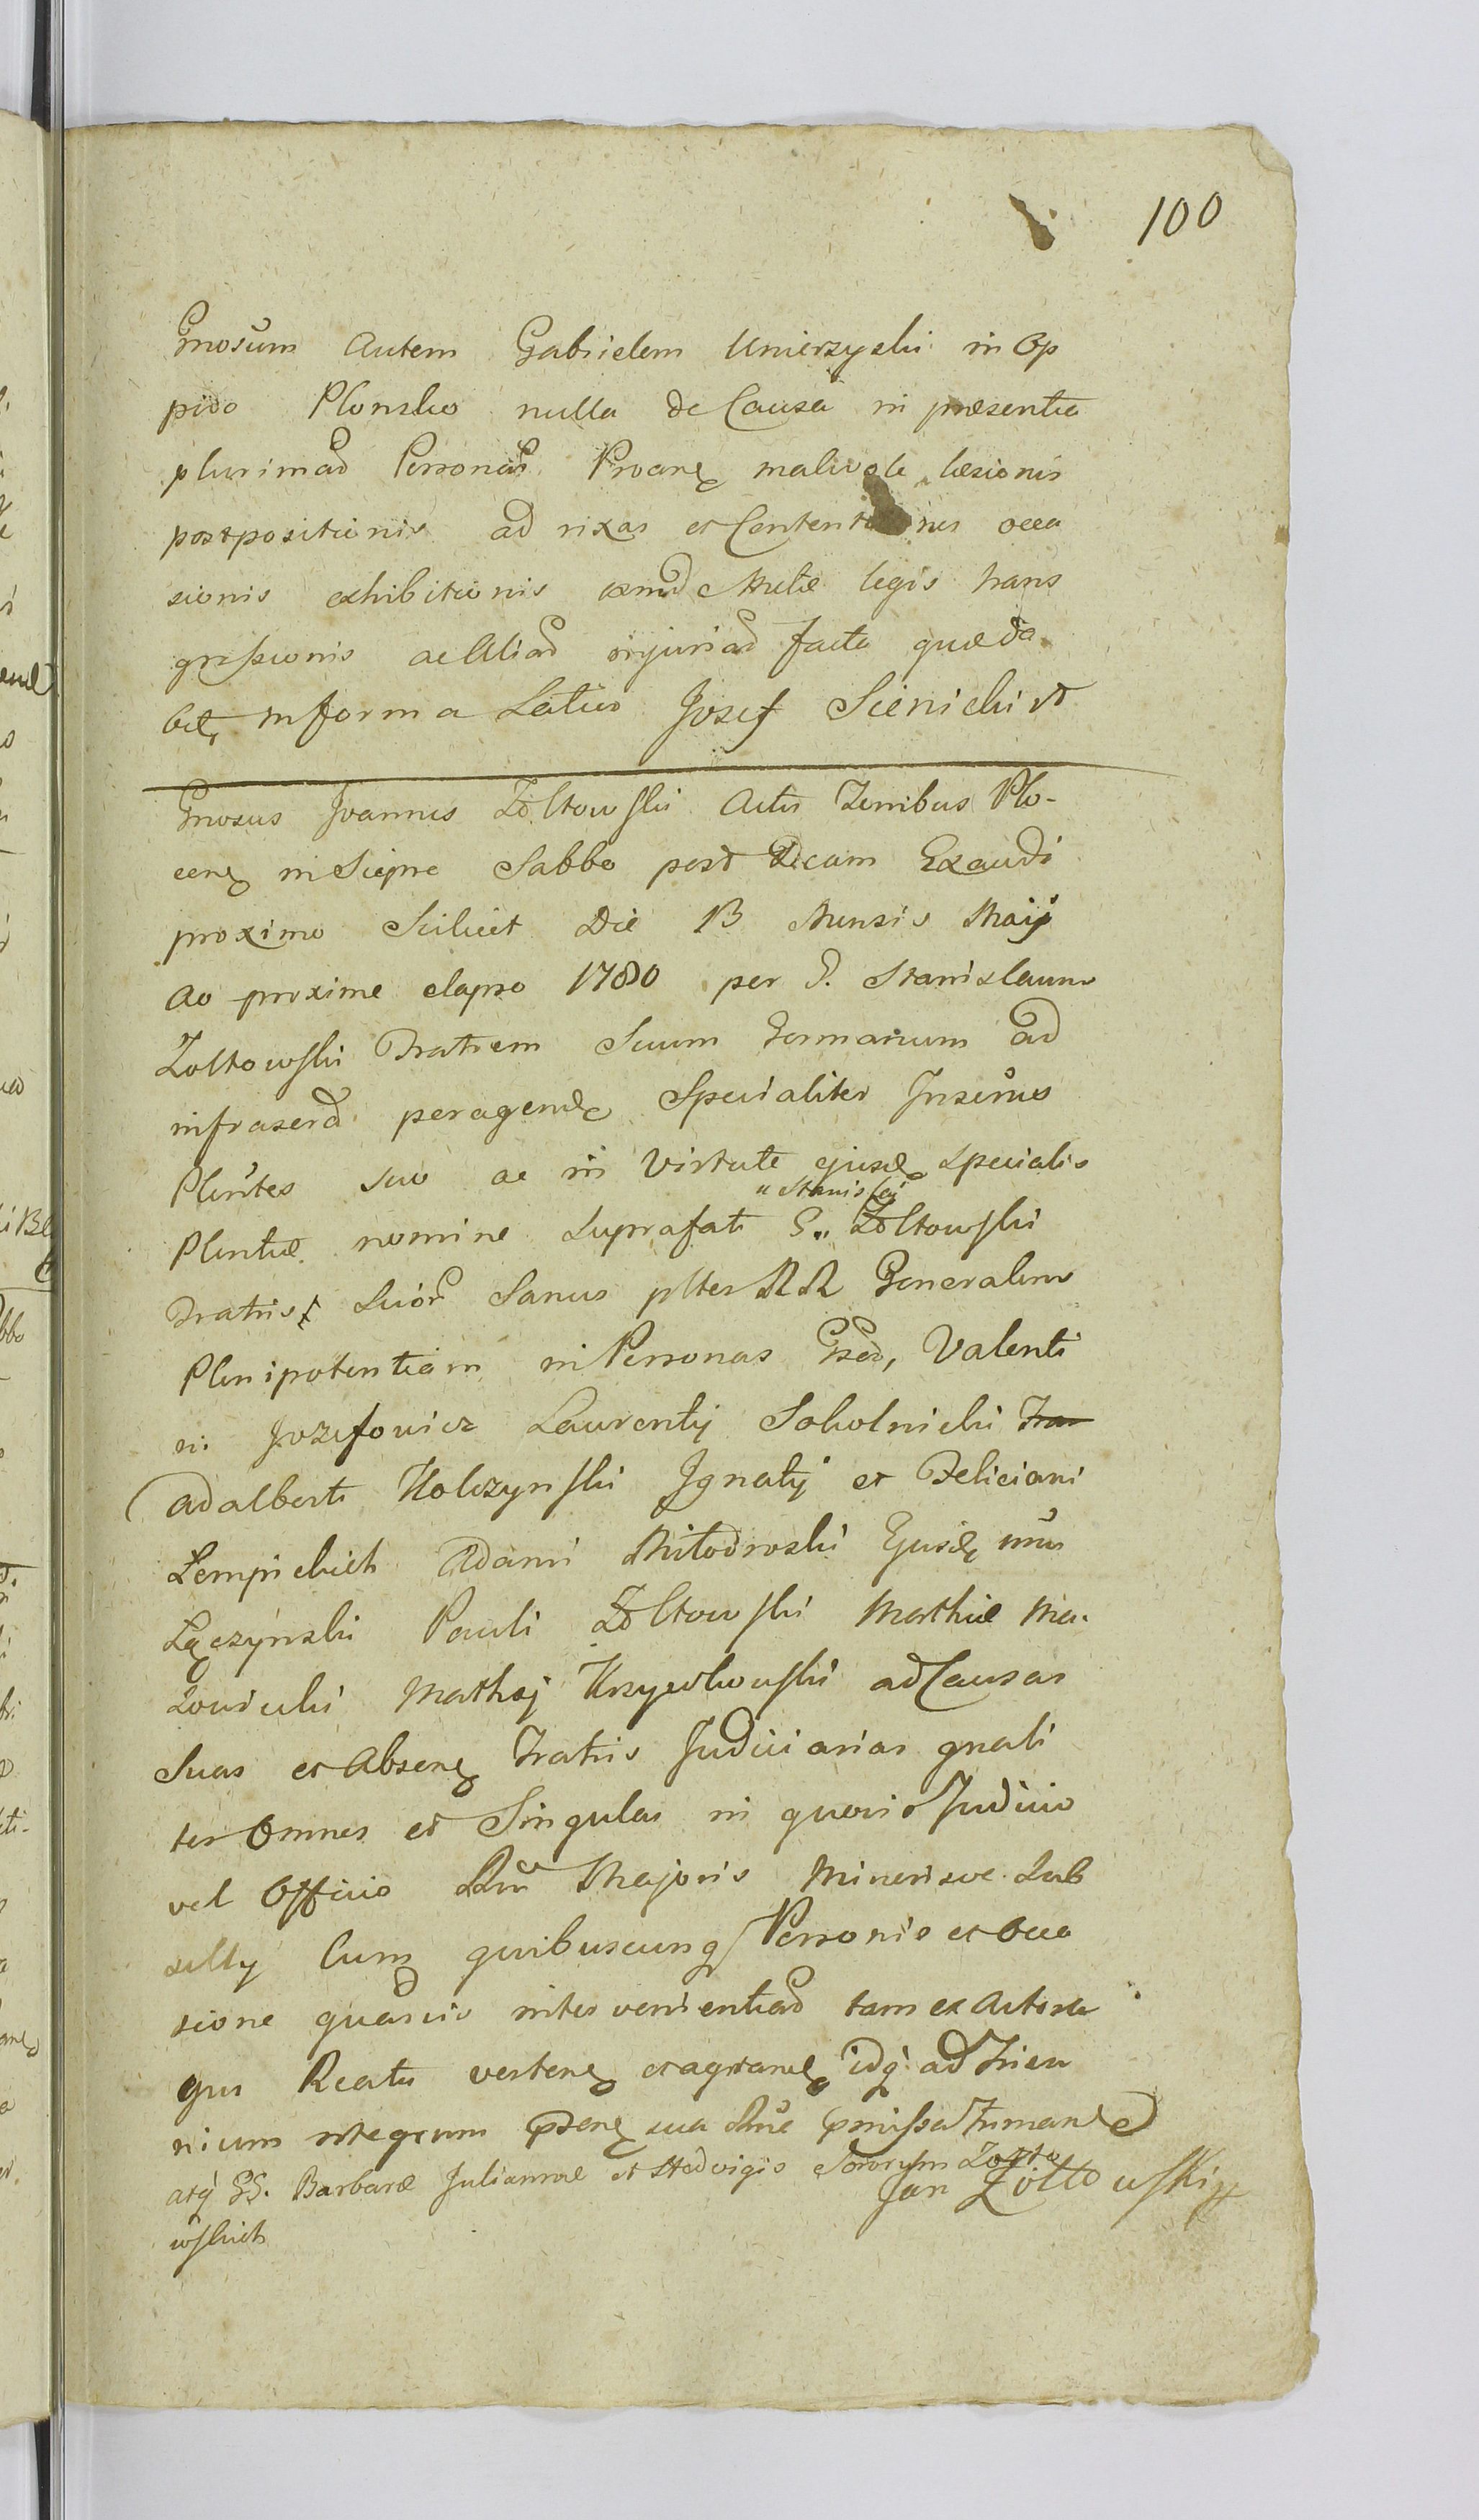 100
Gnosum autem Gabrielem Umierzyski in Op
pido Plonsko nulla de Causa in præsentia
plurimar Personar malivole læsionis
postpositionis ad rixas et Contentiones occa
sionis exhibitionis legis trans
gressionis ac Aliar injuriar facta quæda
in forma Latiori Josef Sienicki
Gnosus Joannes Żołtowski Actis Plo-
cen in Sierpc Sabbo post Dcam Exaudi
proximo Scilicet Die 13 Mensis Maij
Ao proxime elapso 1780 per G. Stanislaum
Zołtowski Fratrem Suum Germanum ad
infrascr peragend Specialiter
Plentes suo ac in Virtute ejusd specialis
"Stanislai
Plentiæ nomine suprafati G" Żołtowski
Fratris Suor Sanus Generalem
Plenipotentiam in Personas Valenti
ni Jozefowicz Laurentij Sokolnicki
Adalberti Kolczynski Ignatij et Feliciani
Lempickich Adami Miłodroski
Łączynski Pauli Żołtowski Mathiæ Ma-
zowiecki Mathæj Krzyczkowski ad Causas
Suas et Absen Fratris Judiciarias gnali
ter Omnes et Singulas in quovis Judicio
vel Officio Majoris Minorisve Sub
sellij Cum quibuscunq Personis et Occa
sione quarvis intervenientiad tam ex Actora
quo Reatu verten et agitand idq ad Trien
nium integrum sua
atq GG. Barbaræ Juliannæ et Hedvigis Sororum Zołto
wskich
Jan Żołtowski